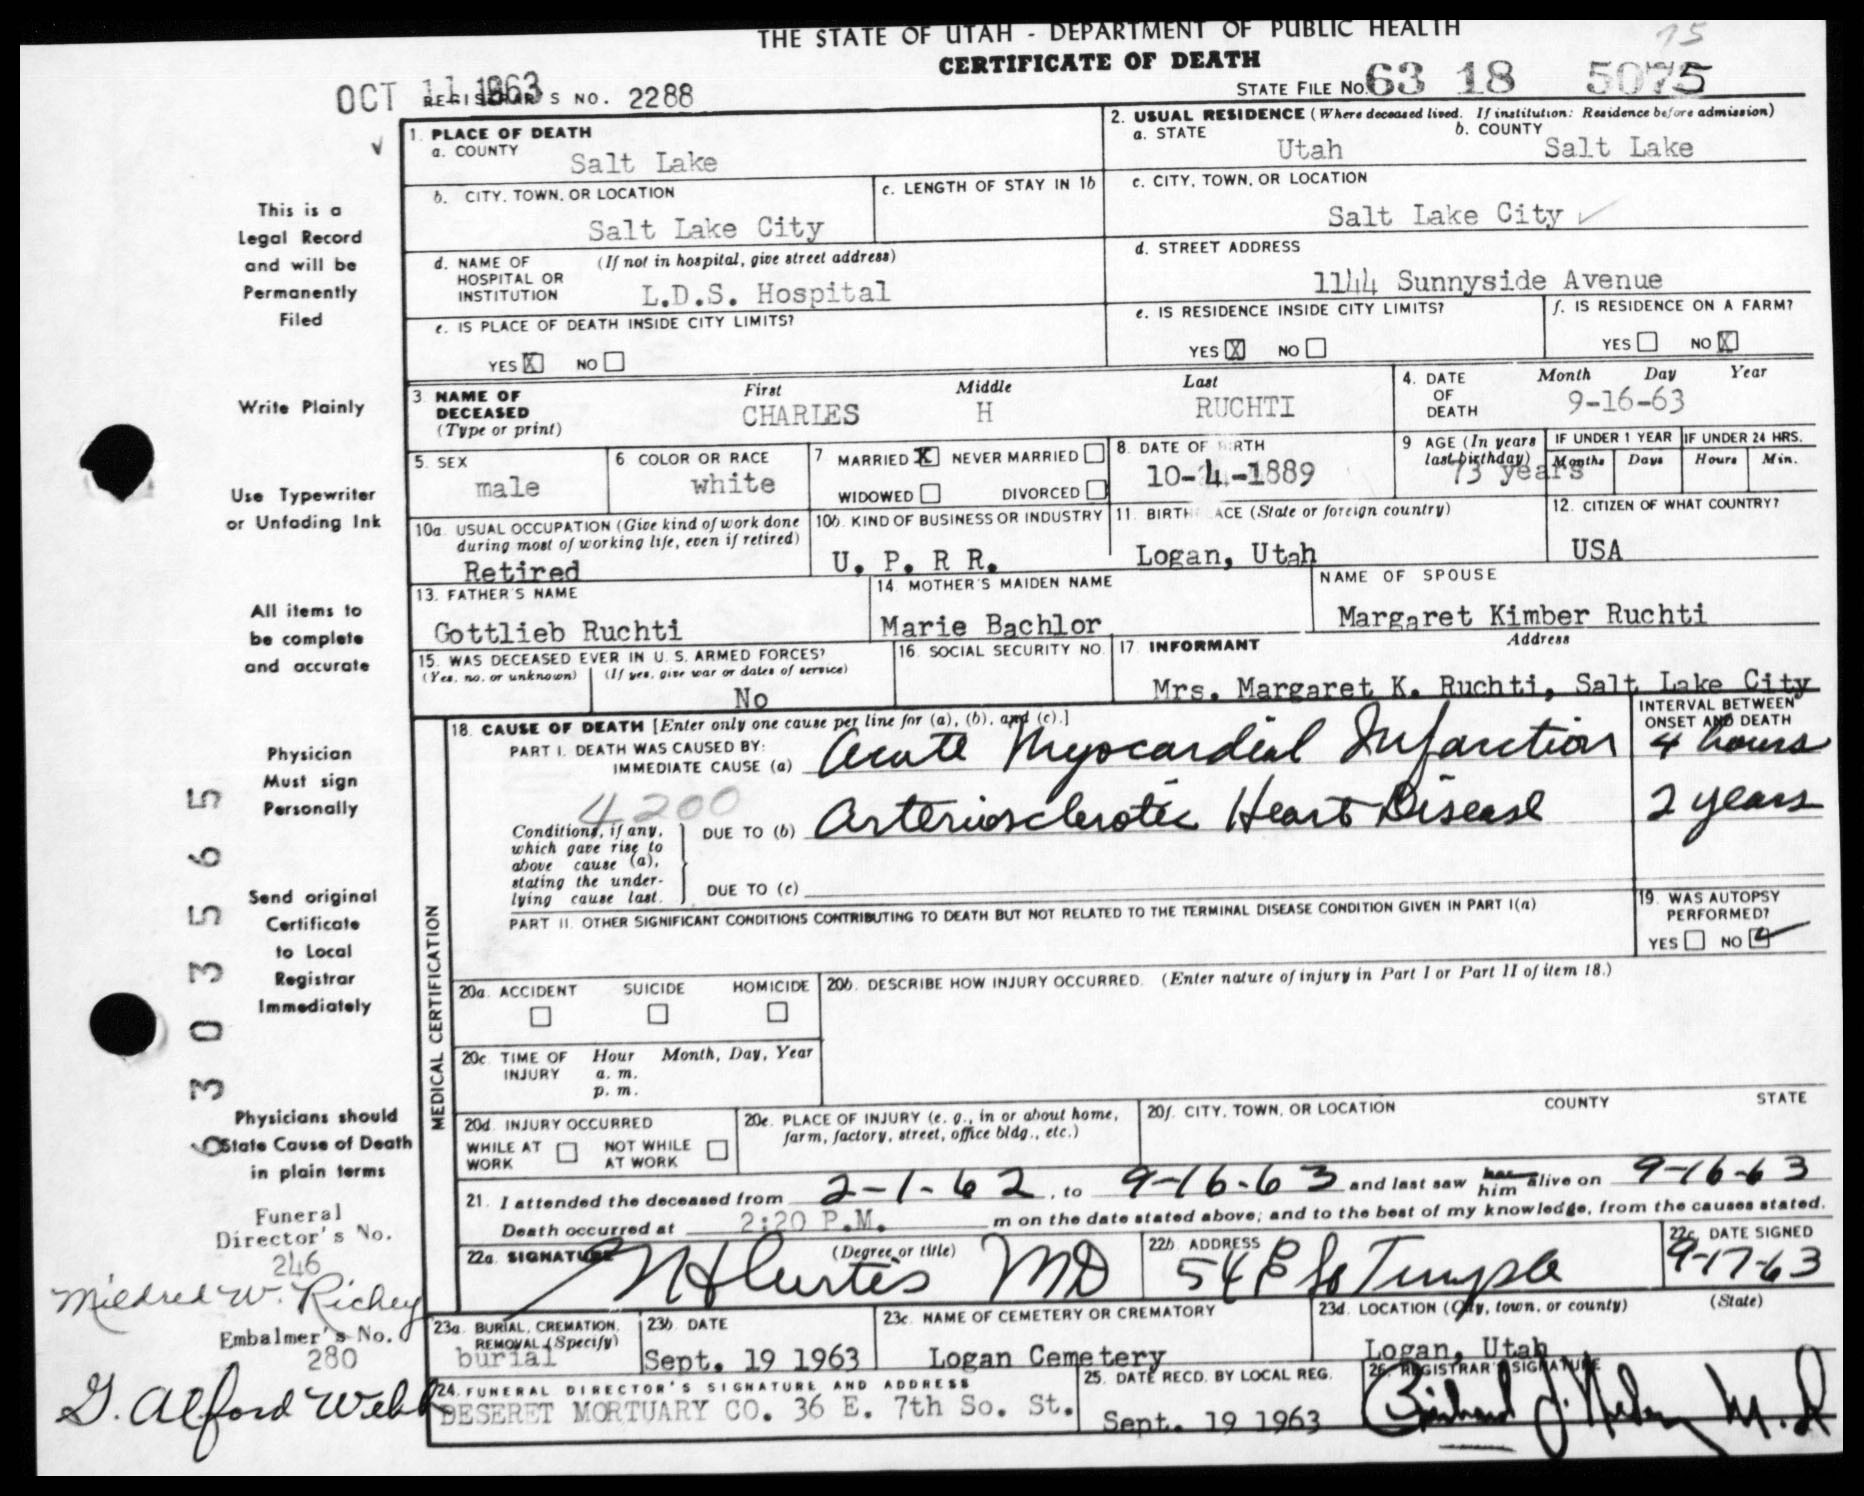 THE STATE OF UTAH - DEPARTMENT OF PUBLIC HEALTH
15
CERTIFICATE OF DEATH
OCT 11 1963
REGISTRAR'S NO. 2288
STATE FILE NO. 63 18 5075
1. PLACE OF DEATH
a. COUNTY
Salt Lake
2. USUAL RESIDENCE (Where deceased lived. If institution: Residence before admission)
a. STATE
Utah
b. COUNTY
Salt Lake
b. CITY, TOWN, OR LOCATION
Salt Lake City
c. LENGTH OF STAY IN 1b
c. CITY, TOWN, OR LOCATION
Salt Lake City
d. NAME OF HOSPITAL OR INSTITUTION
(If not in hospital, give street address)
L.D.S. Hospital
d. STREET ADDRESS
1144 Sunnyside Avenue
e. IS PLACE OF DEATH INSIDE CITY LIMITS?
YES X NO
e. IS RESIDENCE INSIDE CITY LIMITS?
YES X NO
f. IS RESIDENCE ON A FARM?
YES NO X
3. NAME OF DECEASED
(Type or print)
First Middle Last
CHARLES H RUCHTI
4. DATE OF DEATH
Month Day Year
9-16-63
5. SEX
male
6. COLOR OR RACE
white
7. MARRIED X NEVER MARRIED
WIDOWED DIVORCED
8. DATE OF BIRTH
10-4-1889
9. AGE (In years last birthday)
73 years
IF UNDER 1 YEAR
Months Days
IF UNDER 24 HRS.
Hours Min.
10a. USUAL OCCUPATION (Give kind of work done during most of working life, even if retired)
Retired
10b. KIND OF BUSINESS OR INDUSTRY
U. P. R R.
11. BIRTHPLACE (State or foreign country)
Logan, Utah
12. CITIZEN OF WHAT COUNTRY?
USA
13. FATHER'S NAME
Gottlieb Ruchti
14. MOTHER'S MAIDEN NAME
Marie Bachlor
NAME OF SPOUSE
Margaret Kimber Ruchti
15. WAS DECEASED EVER IN U. S. ARMED FORCES?
(Yes, no, or unknown) (If yes, give war or dates of service)
No
16. SOCIAL SECURITY NO.
17. INFORMANT Address
Mrs. Margaret K. Ruchti, Salt Lake City
MEDICAL CERTIFICATION
18. CAUSE OF DEATH [Enter only one cause per line for (a), (b), and (c).]
INTERVAL BETWEEN ONSET AND DEATH
PART I. DEATH WAS CAUSED BY:
IMMEDIATE CAUSE (a) Acute Myocardial Infarction
4 hours
4200
Conditions, if any, which gave rise to above cause (a), stating the underlying cause last.
DUE TO (b) Arteriosclerotic Heart Disease
2 years
DUE TO (c)
PART II. OTHER SIGNIFICANT CONDITIONS CONTRIBUTING TO DEATH BUT NOT RELATED TO THE TERMINAL DISEASE CONDITION GIVEN IN PART I(a)
19. WAS AUTOPSY PERFORMED?
YES NO
20a. ACCIDENT SUICIDE HOMICIDE
20b. DESCRIBE HOW INJURY OCCURRED. (Enter nature of injury in Part I or Part II of item 18.)
20c. TIME OF INJURY
Hour Month, Day, Year
a. m.
p. m.
20d. INJURY OCCURRED
WHILE AT WORK NOT WHILE AT WORK
20e. PLACE OF INJURY (e. g., in or about home, farm, factory, street, office bldg., etc.)
20f. CITY, TOWN, OR LOCATION COUNTY STATE
21. I attended the deceased from 2-1-62, to 9-16-63 and last saw her him alive on 9-16-63
Death occurred at 2:20 P.M. m on the date stated above; and to the best of my knowledge, from the causes stated.
22a. SIGNATURE (Degree or title)
Curtis MD
22b. ADDRESS
54 E So Temple
22c. DATE SIGNED
9-17-63
23a. BURIAL, CREMATION, REMOVAL (Specify)
burial
23b. DATE
Sept. 19 1963
23c. NAME OF CEMETERY OR CREMATORY
Logan Cemetery
23d. LOCATION (City, town, or county) (State)
Logan, Utah
24. FUNERAL DIRECTOR'S SIGNATURE AND ADDRESS
DESERET MORTUARY CO. 36 E. 7th So. St.
25. DATE RECD. BY LOCAL REG.
Sept. 19 1963
26. REGISTRAR'S SIGNATURE
M.D
This is a
Legal Record
and will be
Permanently
Filed
Write Plainly
Use Typewriter
or Unfading Ink
All items to
be complete
and accurate
Physician
Must sign
Personally
Send original
Certificate
to Local
Registrar
Immediately
Physicians should
State Cause of Death
in plain terms
6303565
Funeral
Director's No.
246
Mildred W. Richey
Embalmer's No.
280
G. Alford Webb